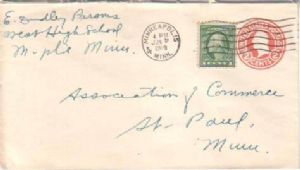 E. Dudley Parsons
West High School
M-pls Minn.
MINNEAPOLIS
MINN.
Association of Commerce
St. Paul,
Minn.